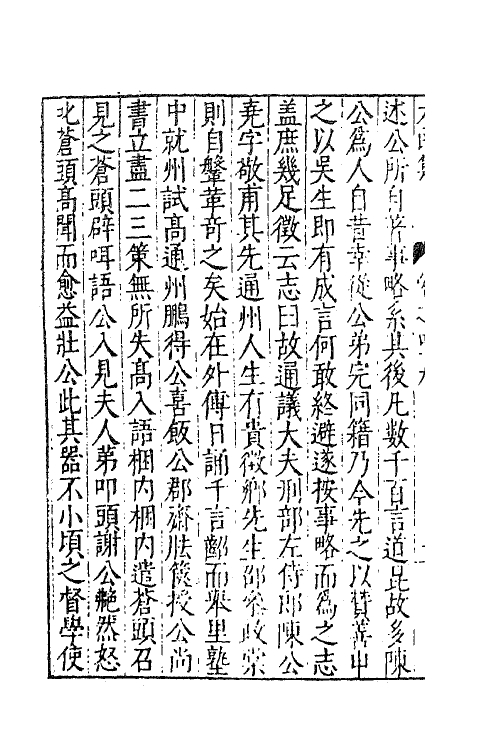 述公所自著事略系其後凡數千百言道昆故多陳
公爲人自昔幸從公弟完同籍乃今先之以賛善申
之以吳生即有成言何敢終避遂按事略而爲之志
盖庶幾足徵云志曰故通議大夫刑部左侍郎陳公
堯字敬甫其先通州人生有貴徵鄉先生邵客政棠
則自盤革奇之矣始在外傳日誦千言齠而舉里塾
中就州試高通州鵬得公喜飯公郡齋胠篋授公尚
書立盡二三策無所失高入語梱内梱内遣蒼頭召
見之蒼頭辟咡語公入見夫人苐叩頭謝公艴然怒
北蒼頭高聞而愈益壯公此其器不小頃之督學使